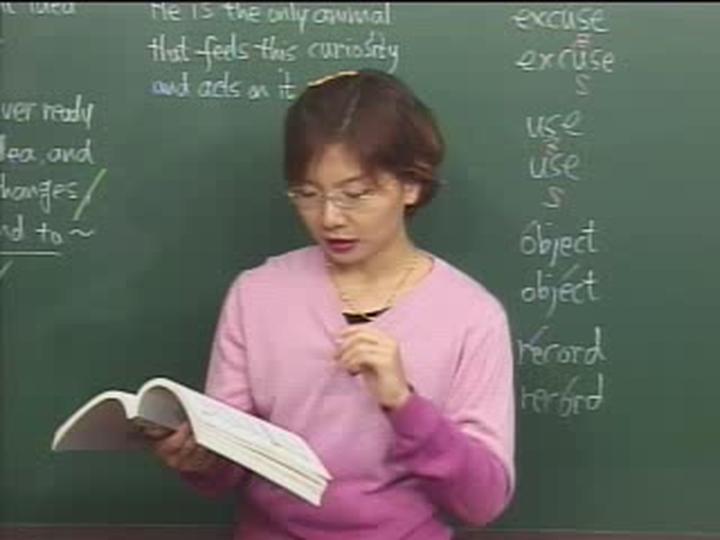 idea
ver ready
dea, and
hanges,
nd to ~
He is the only animal
that feels this curiosity
and acts on it
excuse
z
excuse
s
use
z
use
s
object
object
record
record